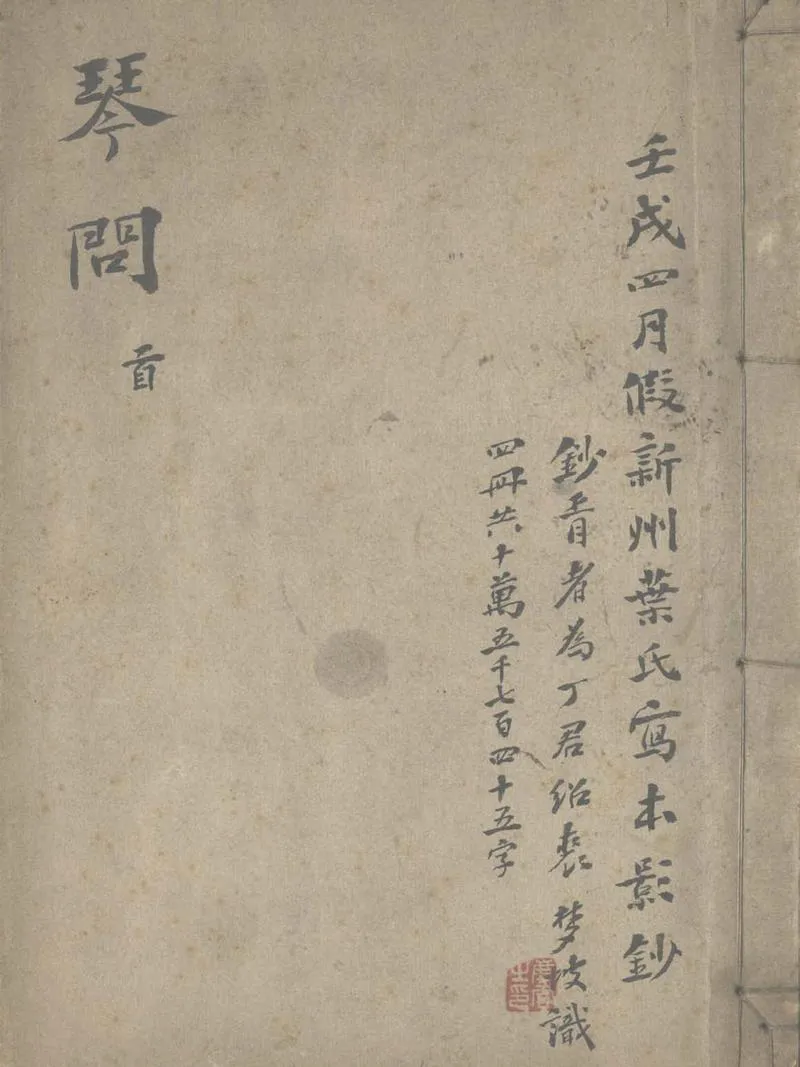 壬戌四月假新州葉氏寫本影鈔
鈔胥者為丁君紹裘 梦坡識
四冊共十萬五千七百四十五字
琴問 首